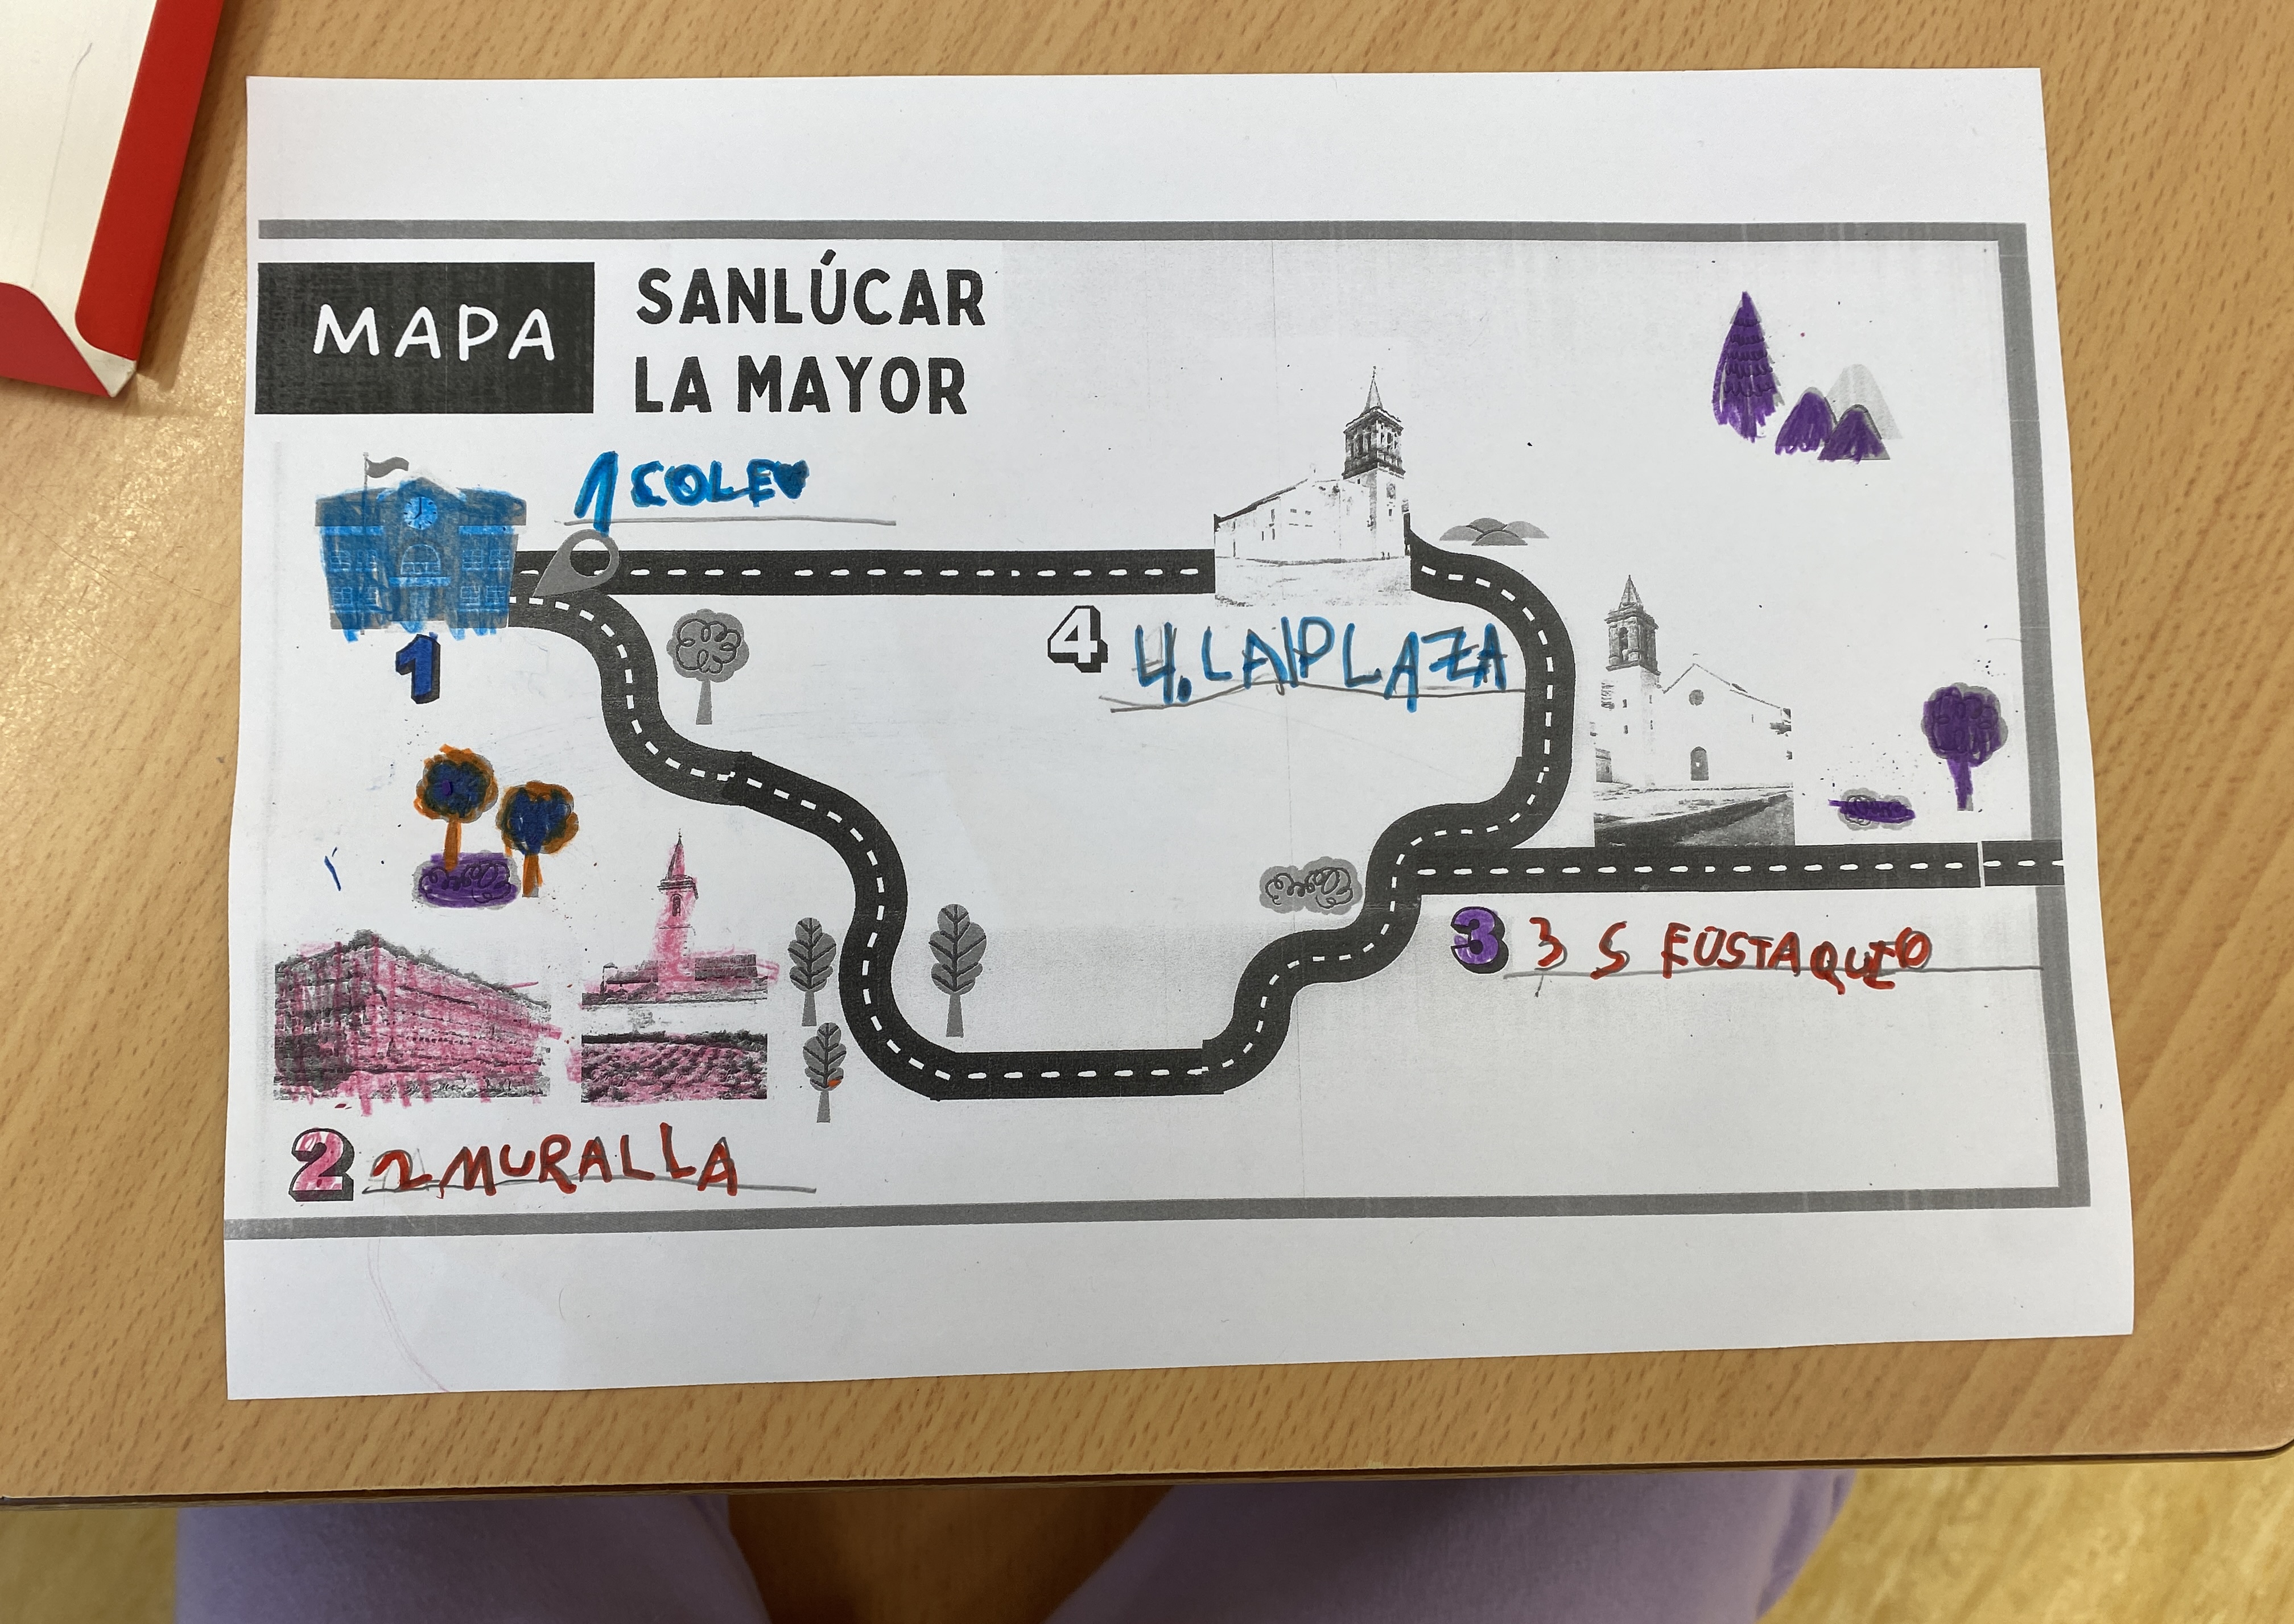 MAPA
SANLÚCAR
LA MAYOR
1 COLE
1
4
4. LA PLAZA
3
3 S EUSTAQUIO
2
2 MURALLA